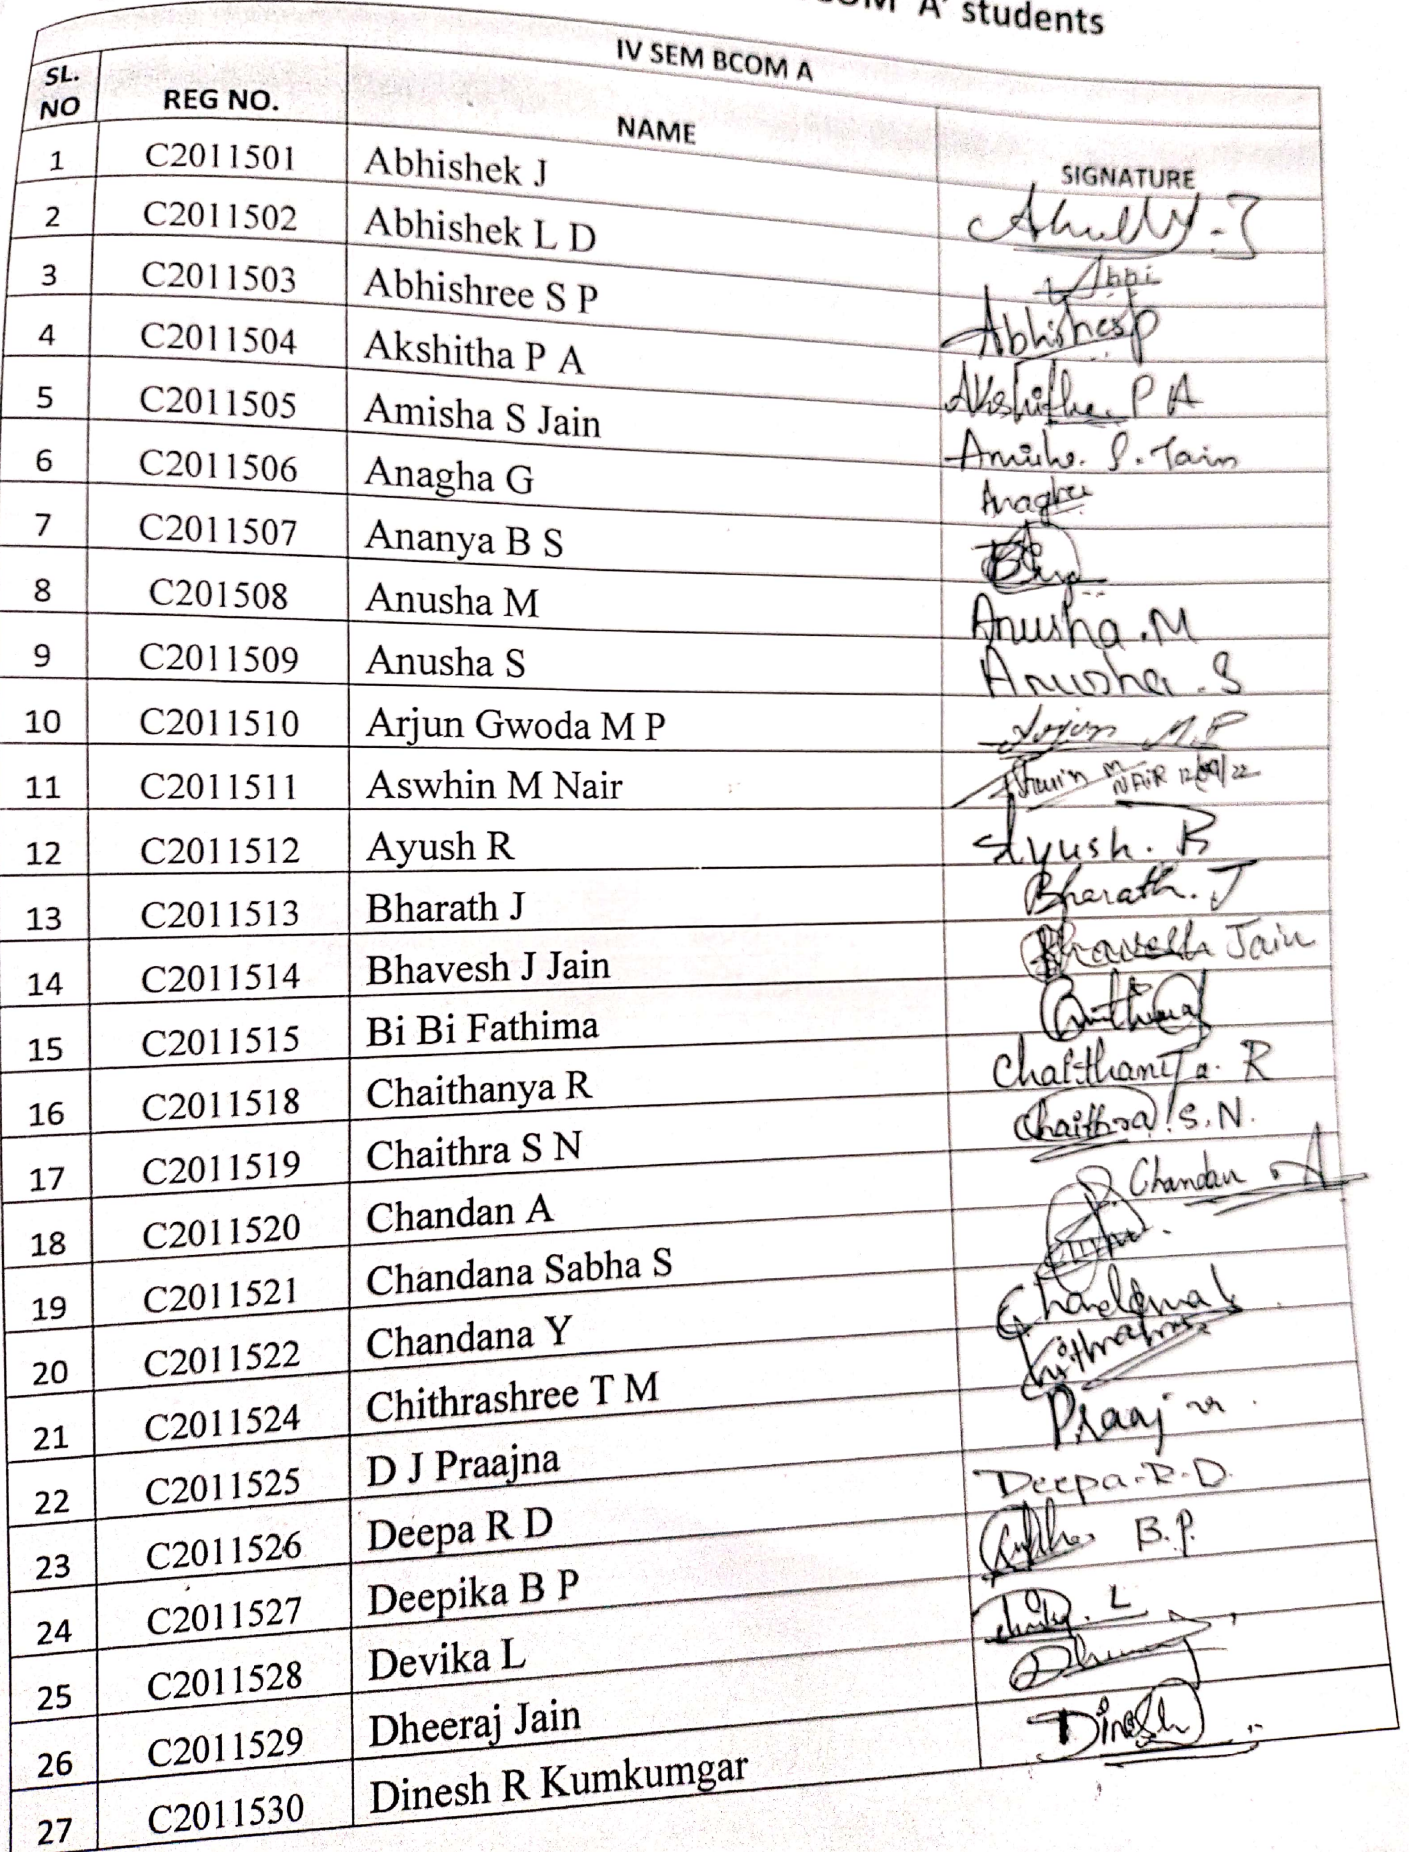 A' students
IV SEM BCOM A
SL. NO REG NO. NAME SIGNATURE
1 C2011501 Abhishek J
2 C2011502 Abhishek L D Abhi
3 C2011503 Abhishree S P
4 C2011504 Akshitha P A Akshitha P A
5 C2011505 Amisha S Jain Amisha. S. Jain
6 C2011506 Anagha G Anagha
7 C2011507 Ananya B S
8 C201508 Anusha M Anusha.M
9 C2011509 Anusha S Anusha.S
10 C2011510 Arjun Gwoda M P Arjun M.P
11 C2011511 Aswhin M Nair M NAIR
12 C2011512 Ayush R Ayush. R
13 C2011513 Bharath J Bharath. J
14 C2011514 Bhavesh J Jain Bhavesh Jain
15 C2011515 Bi Bi Fathima
16 C2011518 Chaithanya R Chaithanya. R
17 C2011519 Chaithra S N Chaithra S.N.
18 C2011520 Chandan A Chandan A
19 C2011521 Chandana Sabha S
20 C2011522 Chandana Y
21 C2011524 Chithrashree T M
22 C2011525 D J Praajna
23 C2011526 Deepa R D Deepa.R.D.
24 C2011527 Deepika B P B.P.
25 C2011528 Devika L L
26 C2011529 Dheeraj Jain
27 C2011530 Dinesh R Kumkumgar Dinesh